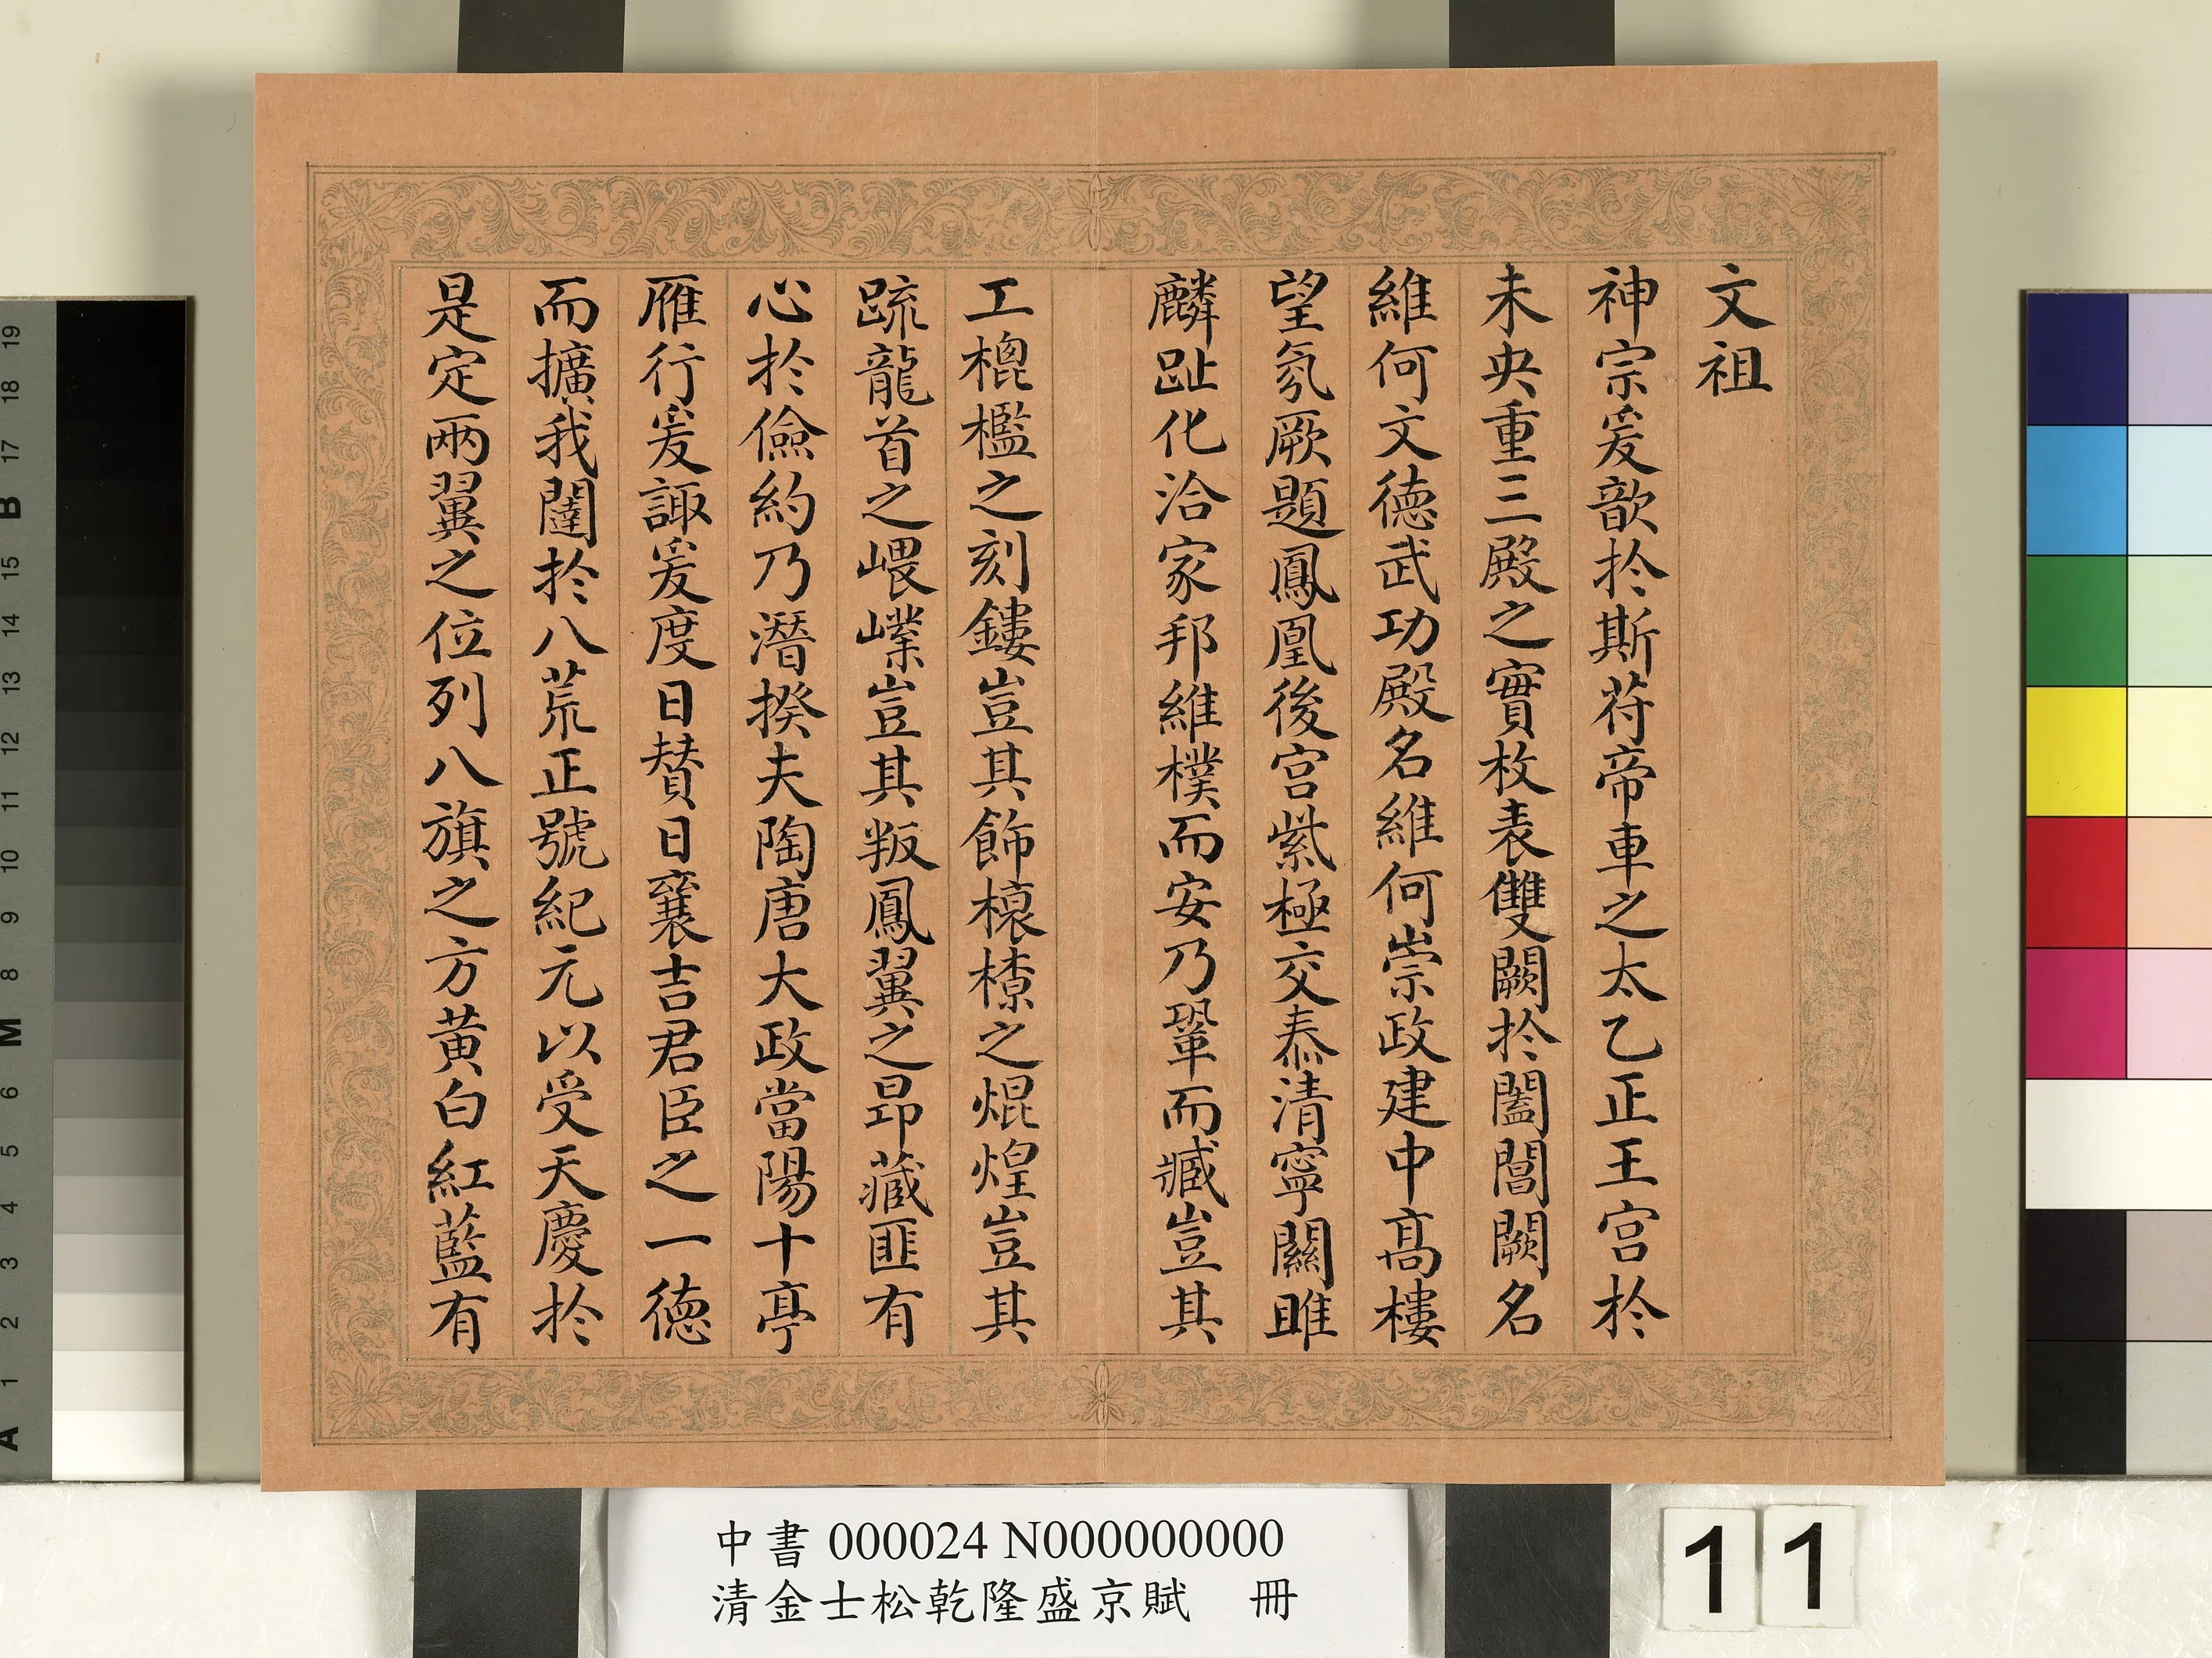 文祖
神宗爰歆於斯苻帝車之太乙正王宫於
未央重三殿之實枚表雙闕於闔閭闕名
維何文德武功殿名維何崇政建中髙樓
望氛厥題鳳凰後宫紫極交泰清寧關雎
麟趾化洽家邦維樸而安乃鞏而臧豈其
工榥檻之刻鏤豈其飾榱橑之焜煌豈其
疏龍首之嵔㠔豈其㸞鳳翼之昂藏匪有
心於儉約乃潛揆夫陶唐大政當陽十亭
雁行爰諏爰度日賛日襄吉君臣之一德
而擴我闥於八荒正號紀元以受天慶於
是定兩翼之位列八旗之方黄白紅藍有
中書 000024 N000000000
清金士松乾隆盛京賦 冊
11
19
18
17
B
15
14
13
12
11
10
9
8
M
6
5
4
3
2
1
A